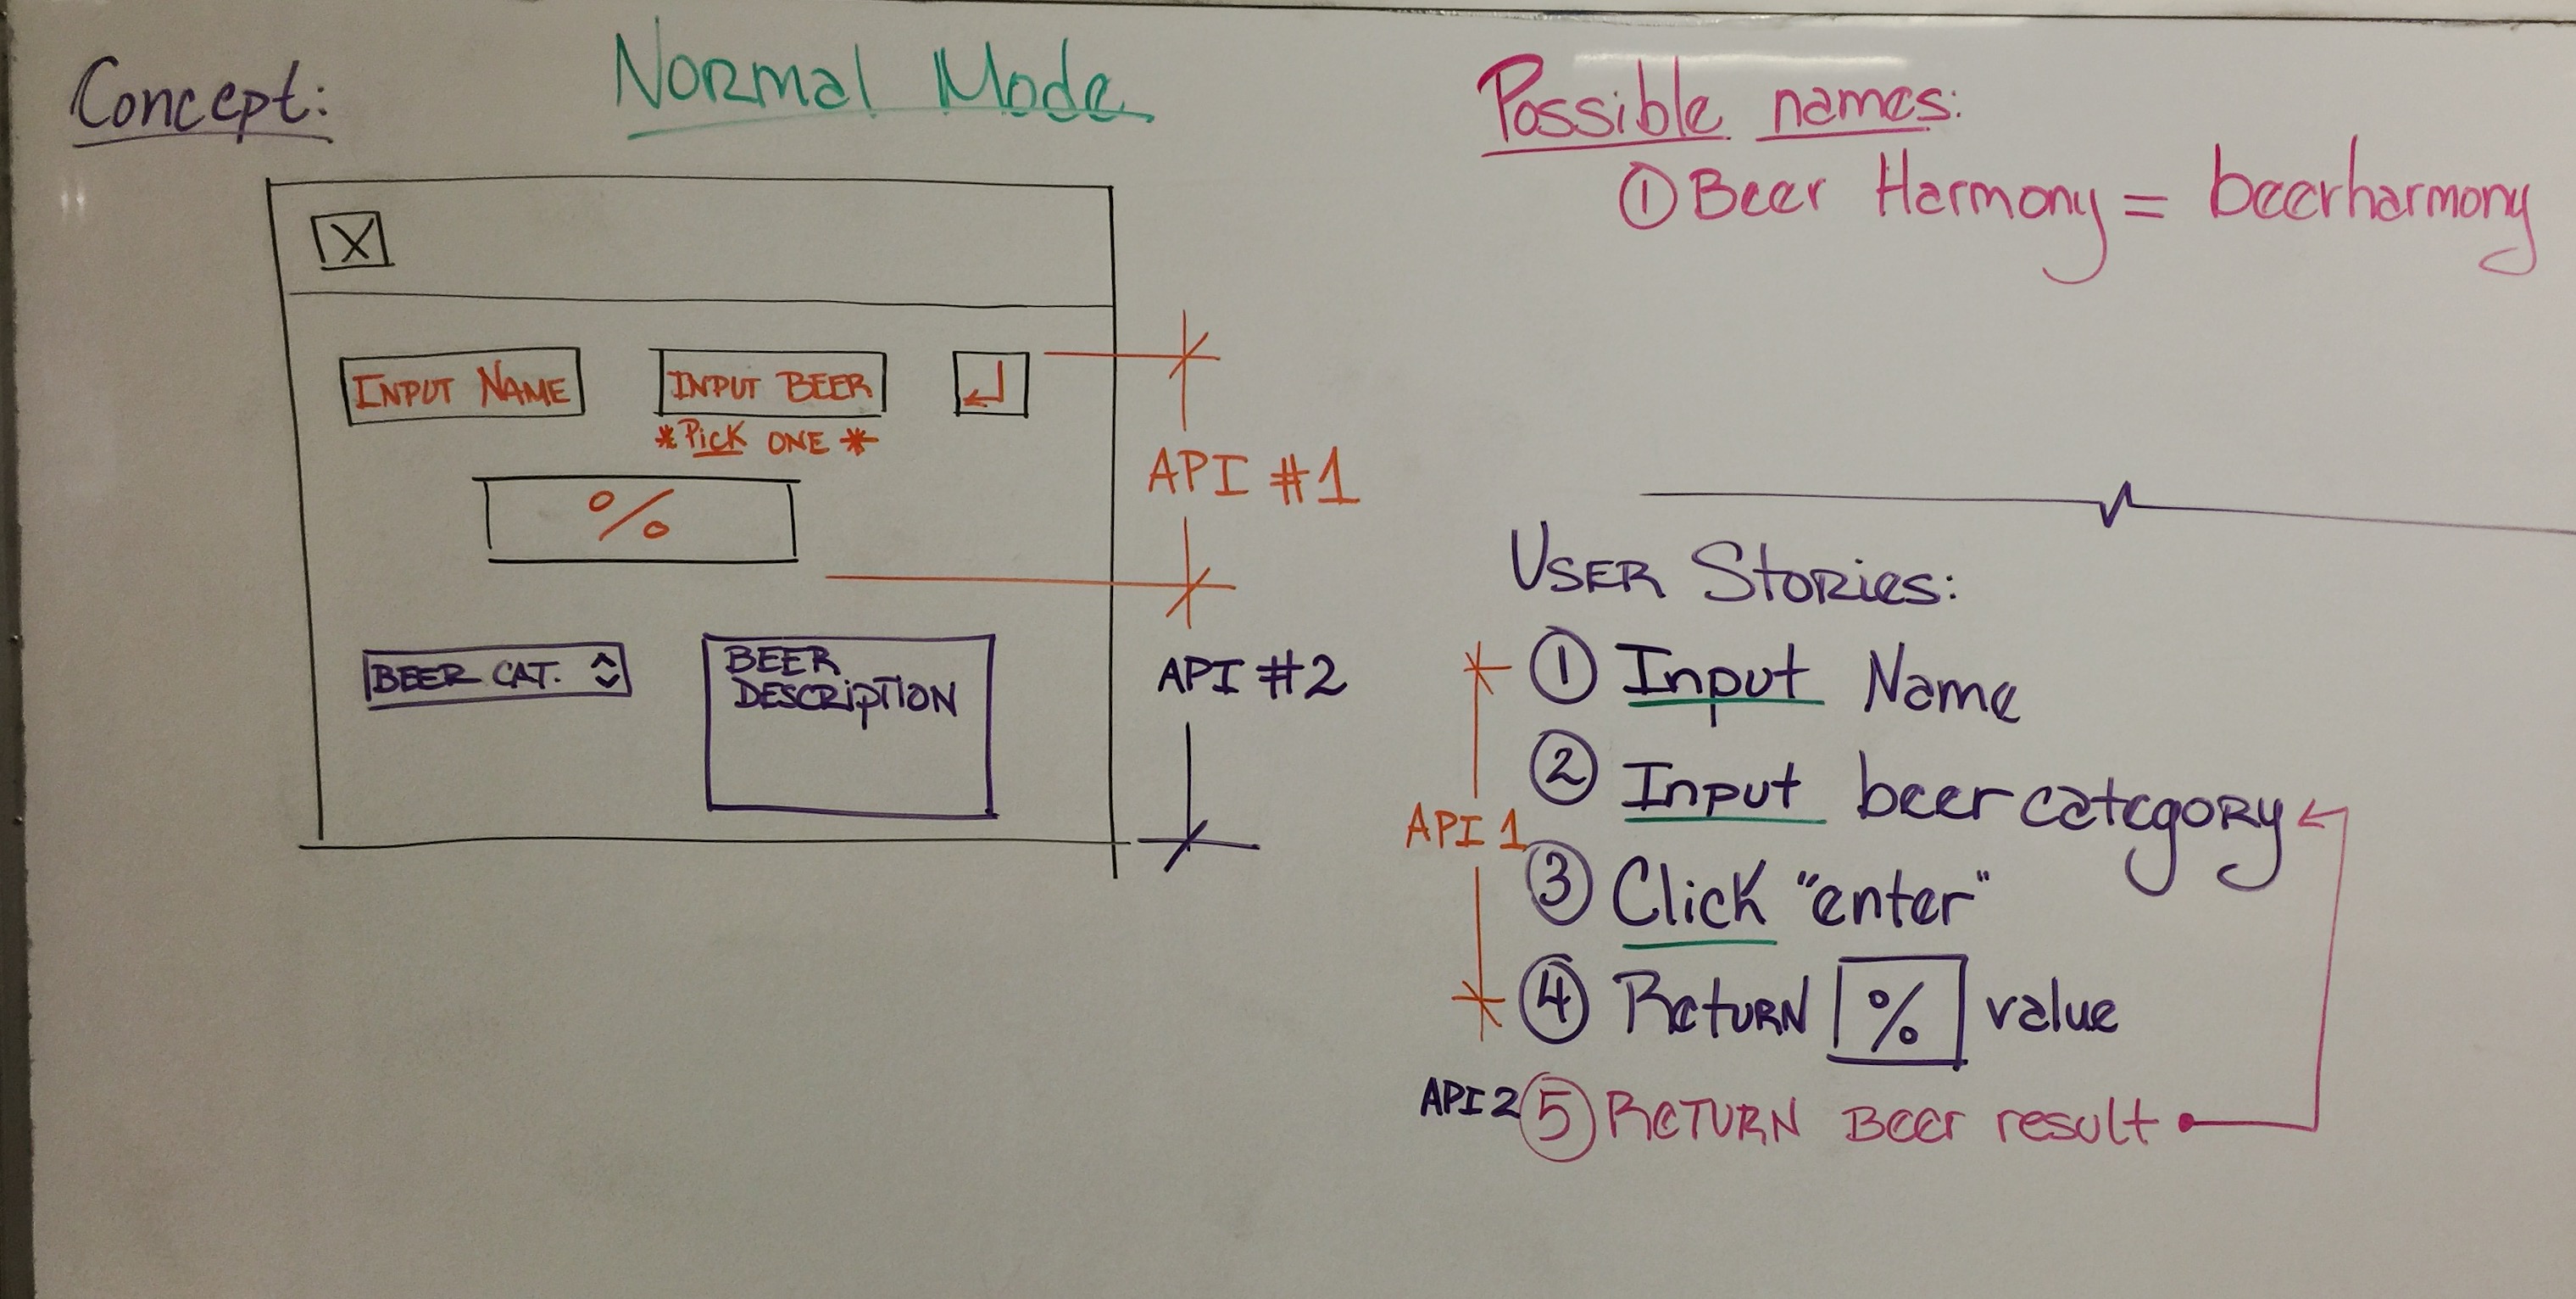 Concept:
Normal Mode
X
INPUT NAME
INPUT BEER
*PICK ONE*
%
API #1
BEER CAT.
BEER
DESCRIPTION
API #2
Possible names:
① Beer Harmony = beerharmony
USER Stories:
① Input Name
② Input beer category
API 1
③ Click "enter"
④ Return % value
API 2 ⑤ RETURN Beer result